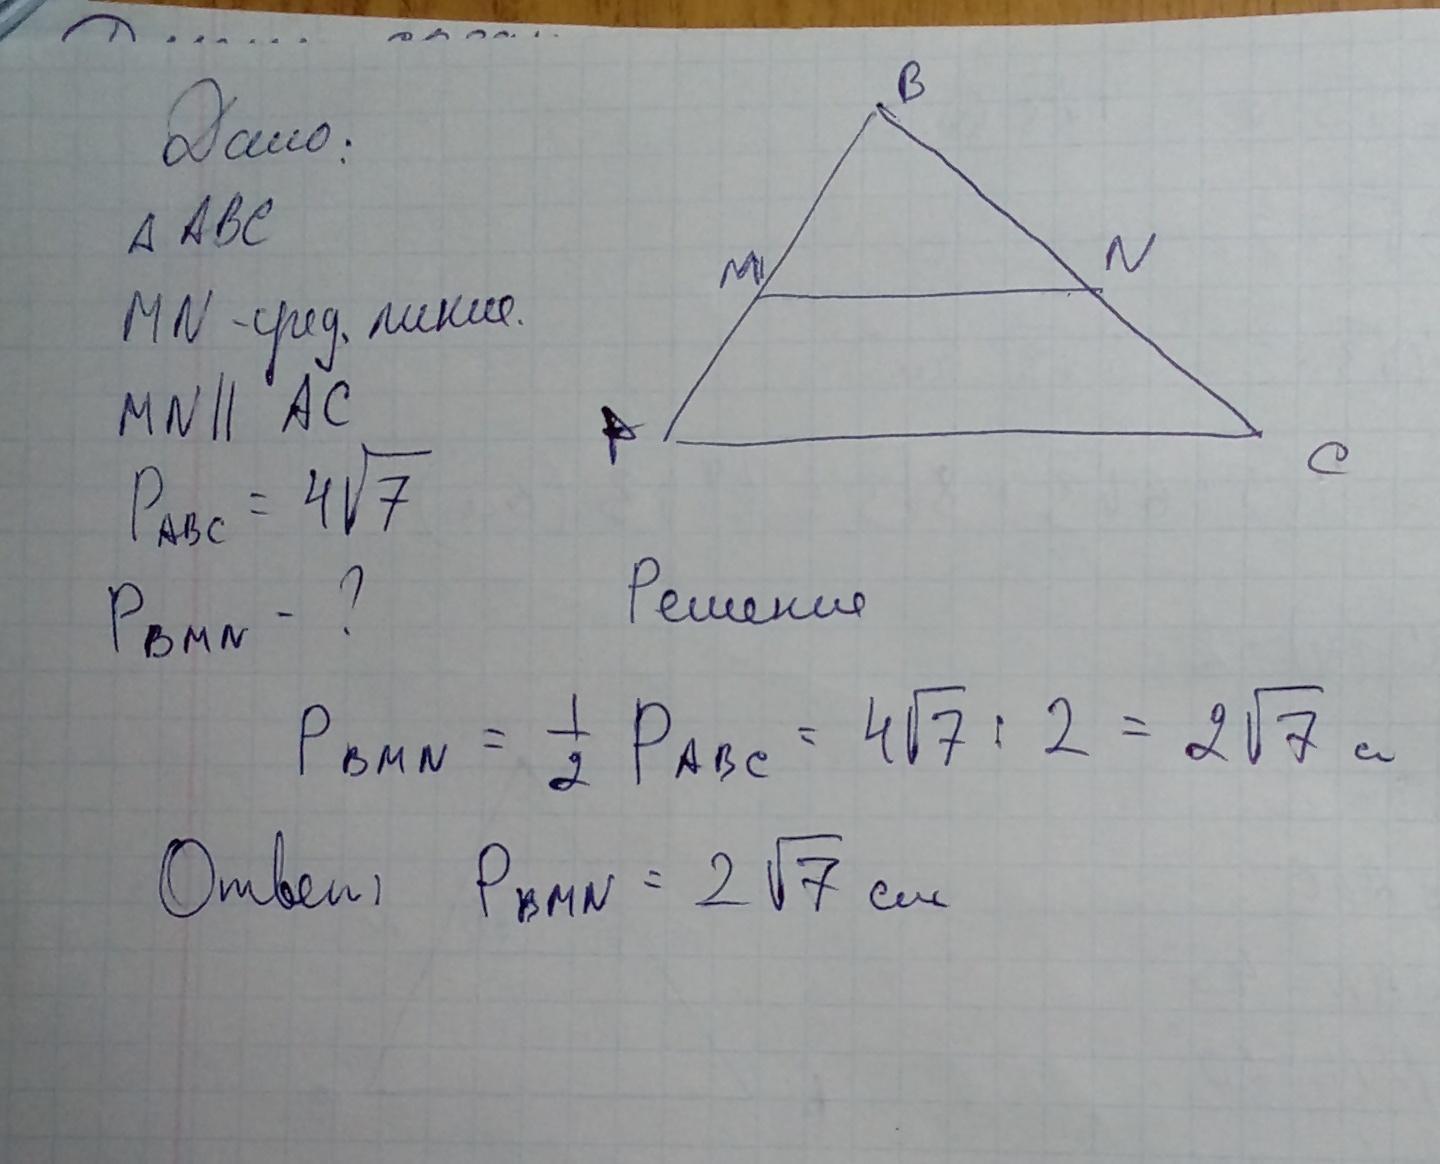 B
Дано:
Δ ABC
M N
MN - сред. линия.
MN || AC
A C
P ABC = 4√7
P BMN - ?
Решение
P BMN = 1/2 P ABC = 4√7 : 2 = 2√7 см
Ответ: P BMN = 2√7 см